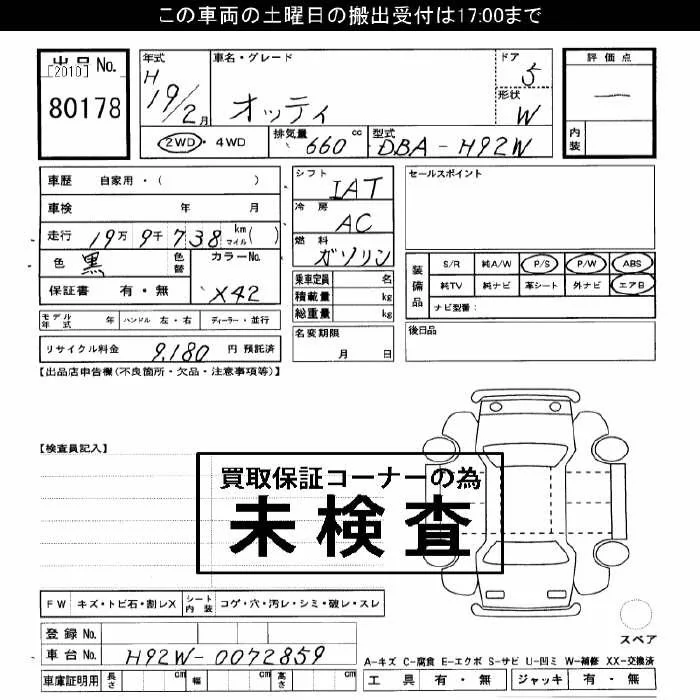 この車両の土曜日の搬出受付は17:00まで
出品 No.
[2010]
80178
年式
H
19/2月
車名・グレード
オッティ
ドア
5
形状
W
評価点
―
内装
2WD・4WD
排気量
660 cc
型式
DBA-H92W
車歴 自家用・( )
車検 年 月
走行 19万9千738 km マイル( )
色 黒
色替
カラーNo.
X42
保証書 有・無
シフト
IAT
冷房
AC
燃料
ガソリン
乗車定員 名
積載量 kg
総重量 kg
名変期限
月 日
セールスポイント
装備品
S/R 純A/W P/S P/W ABS
純TV 純ナビ 革シート 外ナビ エアB
ナビ型番:
後日品
モデル年式 年 ハンドル 左・右 ディーラー・並行
リサイクル料金 9,180 円 預託済
【出品店申告欄(不良箇所・欠品・注意事項等)】
【検査員記入】
買取保証コーナーの為
未検査
FW キズ・トビ石・割レX シート内装 コゲ・穴・汚レ・シミ・破レ・スレ
スペア
登録 No.
車台 No. H92W-0072859
A-キズ C-腐食 E-エクボ S-サビ U-凹ミ W-補修 XX-交換済
車庫証明用 長さ cm 幅 cm 高さ cm
工具 有・無 ジャッキ 有・無